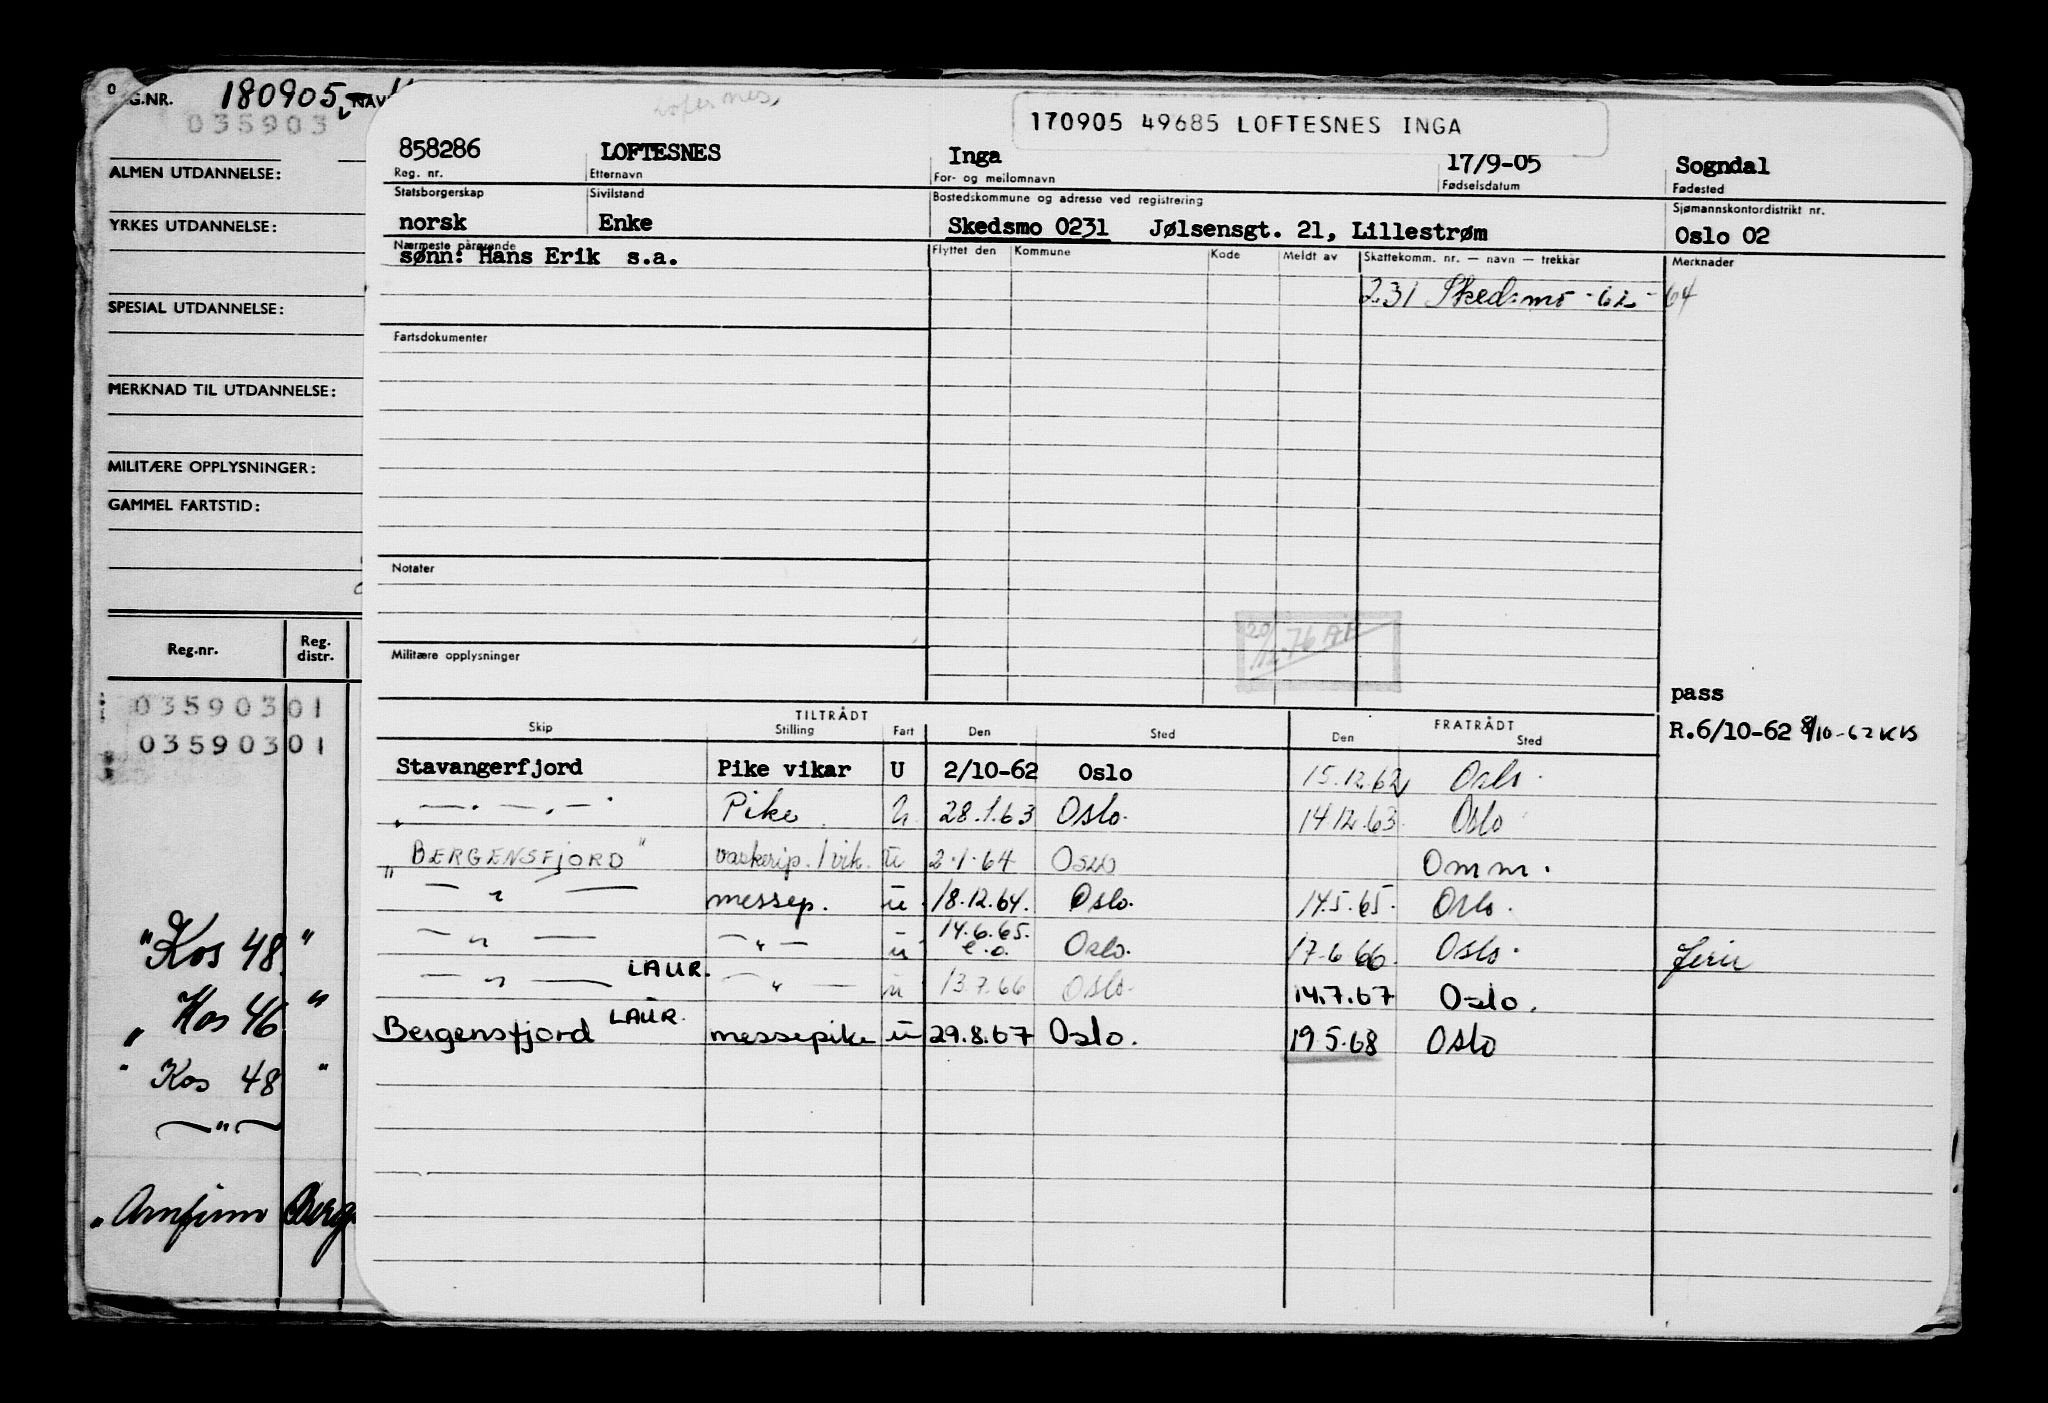 G.NR. 180905 NAV
035903
ALMEN UTDANNELSE:
YRKES UTDANNELSE:
SPESIAL UTDANNELSE:
MERKNAD TIL UTDANNELSE:
MILITÆRE OPPLYSNINGER:
GAMMEL FARTSTID:
Reg.nr. Reg. distr.
035903 01
035903 01
"Kos 48"
"Kos 46"
"Kos 48"
—"—
"Arnfinn Berg
170905 49685 LOFTESNES INGA
858286 LOFTESNES Inga 17/9-05 Sogndal
Reg. nr. Etternavn For- og mellomnavn Fødselsdatum Fødested
Statsborgerskap Sivilstand Bostedskommune og adresse ved registrering Sjømannskontordistrikt nr.
norsk Enke Skedsmo 0231 Jølsensgt. 21, Lillestrøm Oslo 02
Nærmeste pårørende Flyttet den Kommune Kode Meldt av Skattekomm. nr. — navn — trekkår Merknader
sønn: Hans Erik s.a.
231 Skedsmo -62-64
Fartsdokumenter
Notater
Militære opplysninger
pass
R.6/10-62 8/10-62 KVS
TILTRÅDT FRATRÅDT
Skip Stilling Fart Den Sted Den Sted
Stavangerfjord Pike vikar U 2/10-62 Oslo 15.12.62 Oslo.
„ —.—.—. Pike U 28.1.63 Oslo. 14.12.63. Oslo
„BERGENSFJORD" vaskerip./vik. U 2.1.64 Oslo Omm.
— „ — messep. u 18.12.64. Oslo. 14.5.65. Oslo.
— „ — — „ — u 14.6.65. e.o. Oslo. 17.6.66. Oslo. ferie
— „ — LAUR. — „ — u 13.7.66 Oslo. 14.7.67 Oslo.
Bergensfjord LAUR. messepike u 29.8.67 Oslo. 19.5.68 Oslo